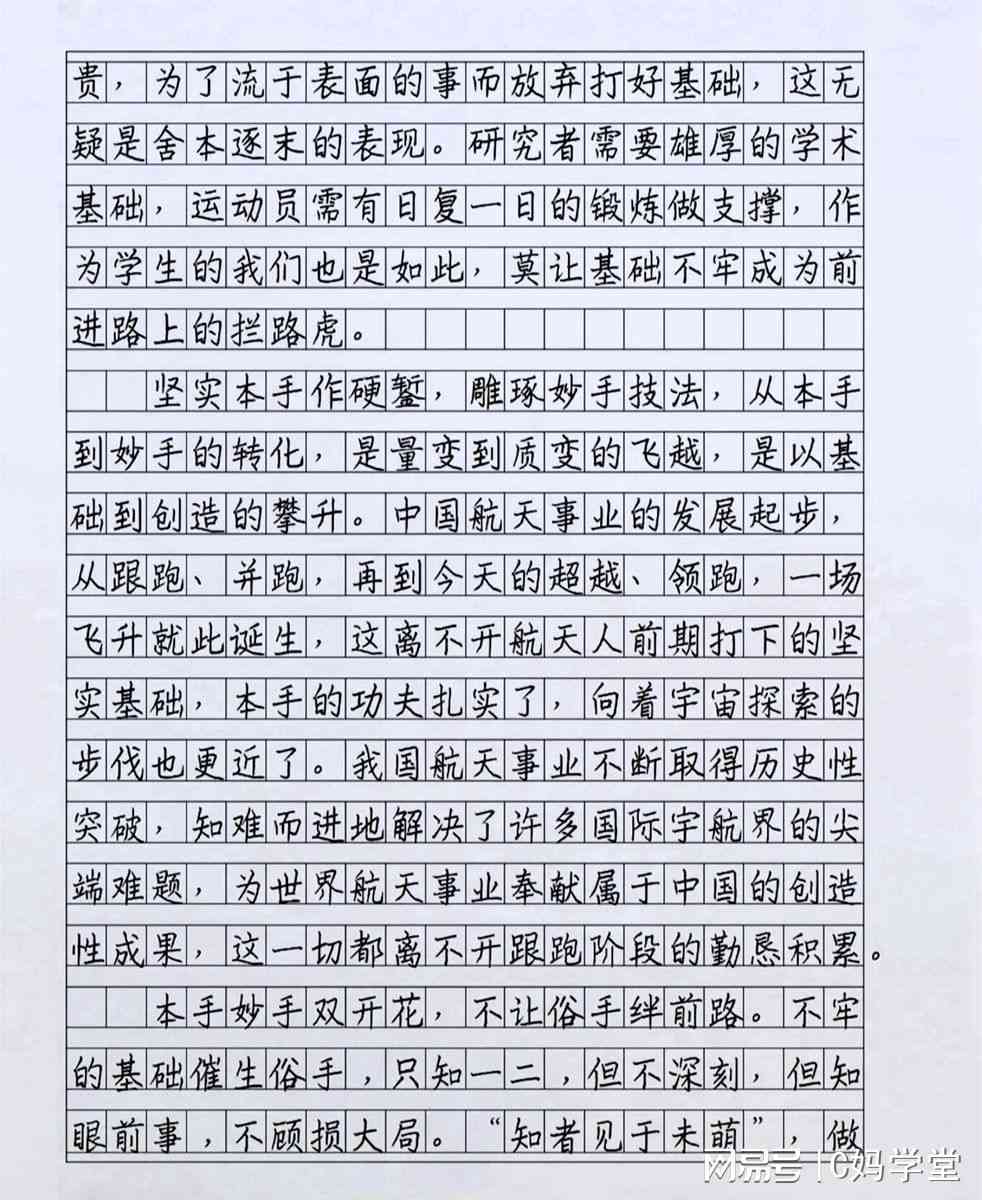 贵，为了流于表面的事而放弃打好基础，这无
疑是舍本逐末的表现。研究者需要雄厚的学术
基础，运动员需有日复一日的锻炼做支撑，作
为学生的我们也是如此，莫让基础不牢成为前
进路上的拦路虎。
坚实本手作硬錾，雕琢妙手技法，从本手
到妙手的转化，是量变到质变的飞越，是以基
础到创造的攀升。中国航天事业的发展起步，
从跟跑、并跑，再到今天的超越、领跑，一场
飞升就此诞生，这离不开航天人前期打下的坚
实基础，本手的功夫扎实了，向着宇宙探索的
步伐也更近了。我国航天事业不断取得历史性
突破，知难而进地解决了许多国际宇航界的尖
端难题，为世界航天事业奉献属于中国的创造
性成果，这一切都离不开跟跑阶段的勤恳积累。
本手妙手双开花，不让俗手绊前路。不牢
的基础催生俗手，只知一二，但不深刻，但知
眼前事，不顾损大局。“知者见于未萌”，做
网易号 | C妈学堂